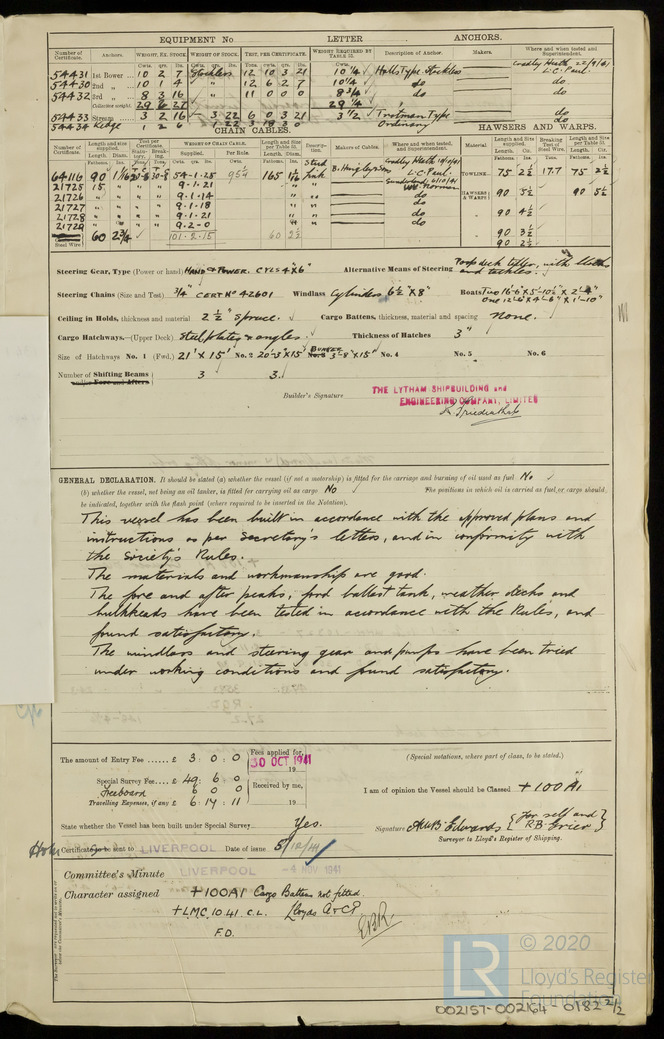 EQUIPMENT No LETTER ANCHORS.
Number of Certificate. Anchors. WEIGHT, EX. STOCK. WEIGHT OF STOCK. TEST, PER CERTIFICATE. WEIGHT REQUIRED BY TABLE 53. Description of Anchor. Makers. Where and when tested and Superintendent.
Cwts. qrs. lbs. Cwts. qrs. lbs. Tons. cwts. qrs. lbs. Cwts.
54431 1st Bower 10 2 7 Stockless 12 10 3 21 10 1/4 Halls Type Stockless Cradley Heath 22/9/41 L.C. Paul.
54430 2nd " 10 1 4 " 12 6 2 7 10 1/4 do do.
54432 3rd " 8 3 16 " 11 0 0 0 8 3/4 do do.
Collective weight. 29 6 27 29 1/4
54433 Stream 3 2 16 3 22 6 0 3 21 3 1/2 Trotman Type do
54434 Kedge 1 2 6 1 22 3 18 3 0 Ordinary do
CHAIN CABLES. HAWSERS AND WARPS.
Number of Certificate. Length and size supplied. Test per Certificate. WEIGHT OF CHAIN CABLE. Length and Size per Table 53. Description. Makers of Cables. Where and when tested, and Superintendent. Material Length and size supplied. Breaking Test of Steel Wire. Length and Size per Table 53.
Length. Diam. Supplied. Per Rule. Length. Diam. Length. Cir. Length. Cir.
Fathoms. Ins. Cwts. qrs. lbs. Cwts. Fathoms. Ins. Fathoms. Ins. Tons. Fathoms. Ins.
64116 90 1 1/16 54-1-25 95 1/4 165 1 1/16 Stud link B. Hingley & Sons Cradley Heath 14/10/41 L.C. Paul TOWLINE 75 2 1/2 17.7 75 2 1/2
21725 15 " " " 9-1-21 " Sunderland 6/10/41 W.H. Norman
21726 " " " " 9-1-14 " do HAWSERS & WARPS 90 5 1/2 90 5 1/2
21727 " " " " 9-1-18 " do
21728 " " " " 9-1-21 do 90 4 1/2
21729 " " " " 9-2-0 " do 90 3 1/2
Steel Wire 60 2 3/4 101-2-15 60 2 1/2 90 2 1/2
Steering Gear, Type (Power or hand) HAND & POWER. CYLS 4"X6" Alternative Means of Steering Poop deck tiller, with blocks and tackles.
Steering Chains (Size and Test) 3/4" CERT No 42601 Windlass Cylinders 6 1/2" X 8" Boats Two 16'-6" X 5'-10 1/2" X 2'-4" One 12'-6" X 4'-6" X 1'-10"
Ceiling in Holds, thickness and material 2 1/2" Spruce. Cargo Battens, thickness, material and spacing none.
Cargo Hatchways.—(Upper Deck). Steel plates & angles. Thickness of Hatches 3"
Size of Hatchways No. 1 (Fwd.) 21' X 15' No. 2 20'-3" X 15' BUNKER No. 3 3'-8" X 15" No. 4 No. 5 No. 6
Number of Shifting Beams and/or Fore and Afters 3 3.
Builder's Signature THE LYTHAM SHIPBUILDING and
ENGINEERING COMPANY, LIMITED
GENERAL DECLARATION. It should be stated (a) whether the vessel (if not a motorship) is fitted for the carriage and burning of oil used as fuel No
(b) whether the vessel, not being an oil tanker, is fitted for carrying oil as cargo No The positions in which oil is carried as fuel or cargo should
be indicated, together with the flash point (where required to be inserted in the Notation).
This vessel has been built in accordance with the approved plans and
instructions as per Secretary's letters, and in conformity with
the Society's Rules.
The materials and workmanship are good.
The fore and after peaks, ford ballast tank, weather decks and
bulkheads have been tested in accordance with the Rules, and
found satisfactory.
The windlass and steering gear and pumps have been tried
under working conditions and found satisfactory.
The amount of Entry Fee ...... £ 3 : 0 : 0 Fees applied for, 30 OCT 1941 19 (Special notations, where part of class, to be stated.)
Special Survey Fee.... £ 49 : 6 : 0 Received by me, I am of opinion the Vessel should be Classed +100A1
Freeboard 6 0 0
Travelling Expenses, if any £ 6 : 14 : 11 19
State whether the Vessel has been built under Special Survey Yes. Signature A.W.B. Edwards { For self and R.B. Grier }
Surveyor to Lloyd's Register of Shipping.
Certificate to be sent to LIVERPOOL Date of issue 5/12/41
Committee's Minute LIVERPOOL 4 NOV 1941
Character assigned +100A1 Cargo Battens not fitted.
+LMC 10.41 C.L. Lloyds A&CP
F.D.
LR © 2020
Lloyd's Register
Foundation
002157-002164-0182 2/2